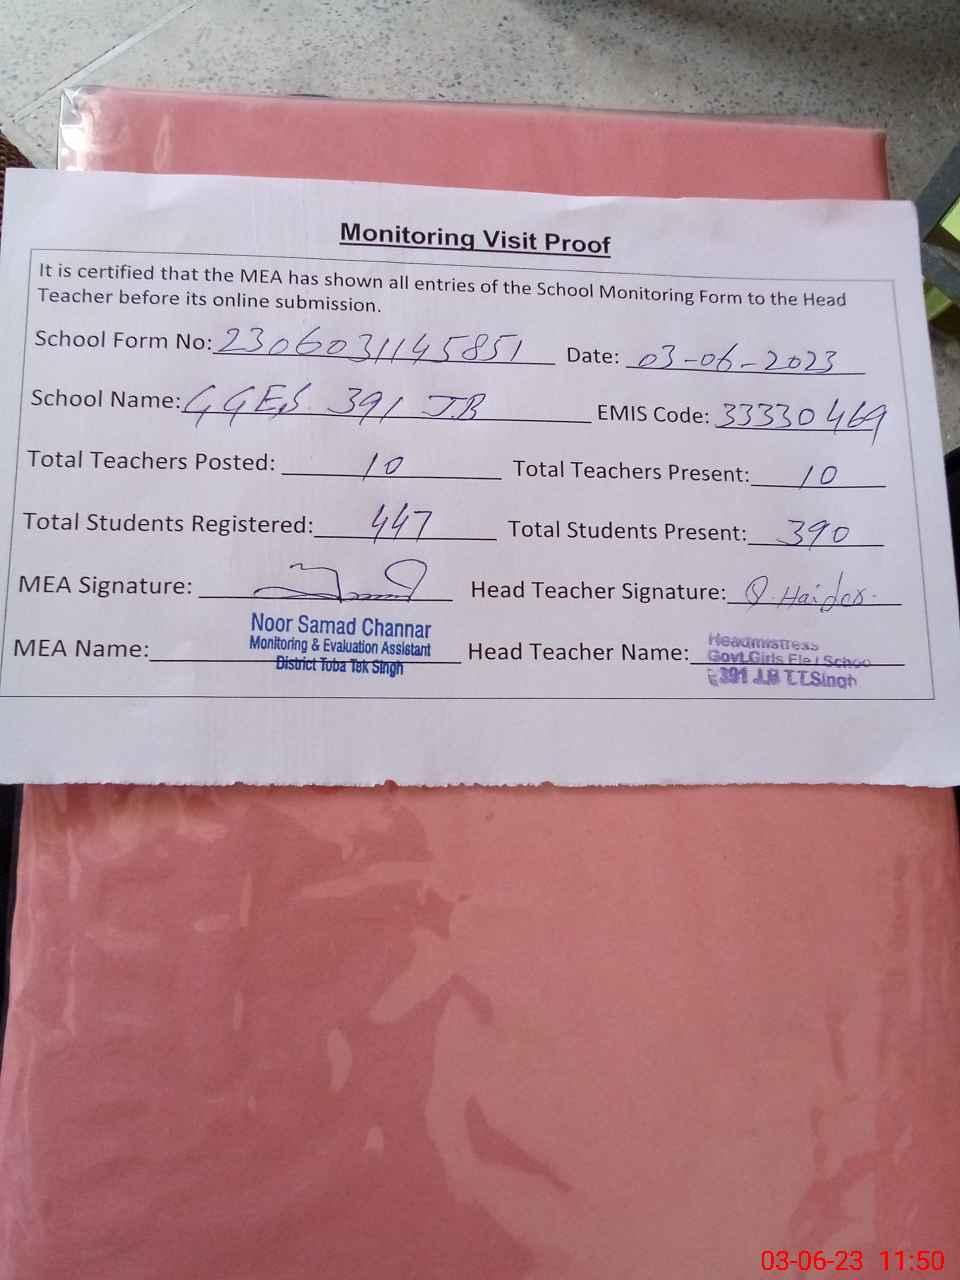 Monitoring Visit Proof
It is certified that the MEA has shown all entries of the School Monitoring Form to the Head
Teacher before its online submission.
School Form No: 2306031145851 Date: 03-06-2023
School Name: GGES. 391 J.B EMIS Code: 33330469
Total Teachers Posted: 10 Total Teachers Present: 10
Total Students Registered: 447 Total Students Present: 390
MEA Signature: Head Teacher Signature: Q. Haider.
MEA Name: Noor Samad Channar Head Teacher Name: Headmistress
Monitoring & Evaluation Assistant Govt.Girls Ele / Schoo
District Tuba Tek Singh 391 J.B T.T.Singh
03-06-23 11:50